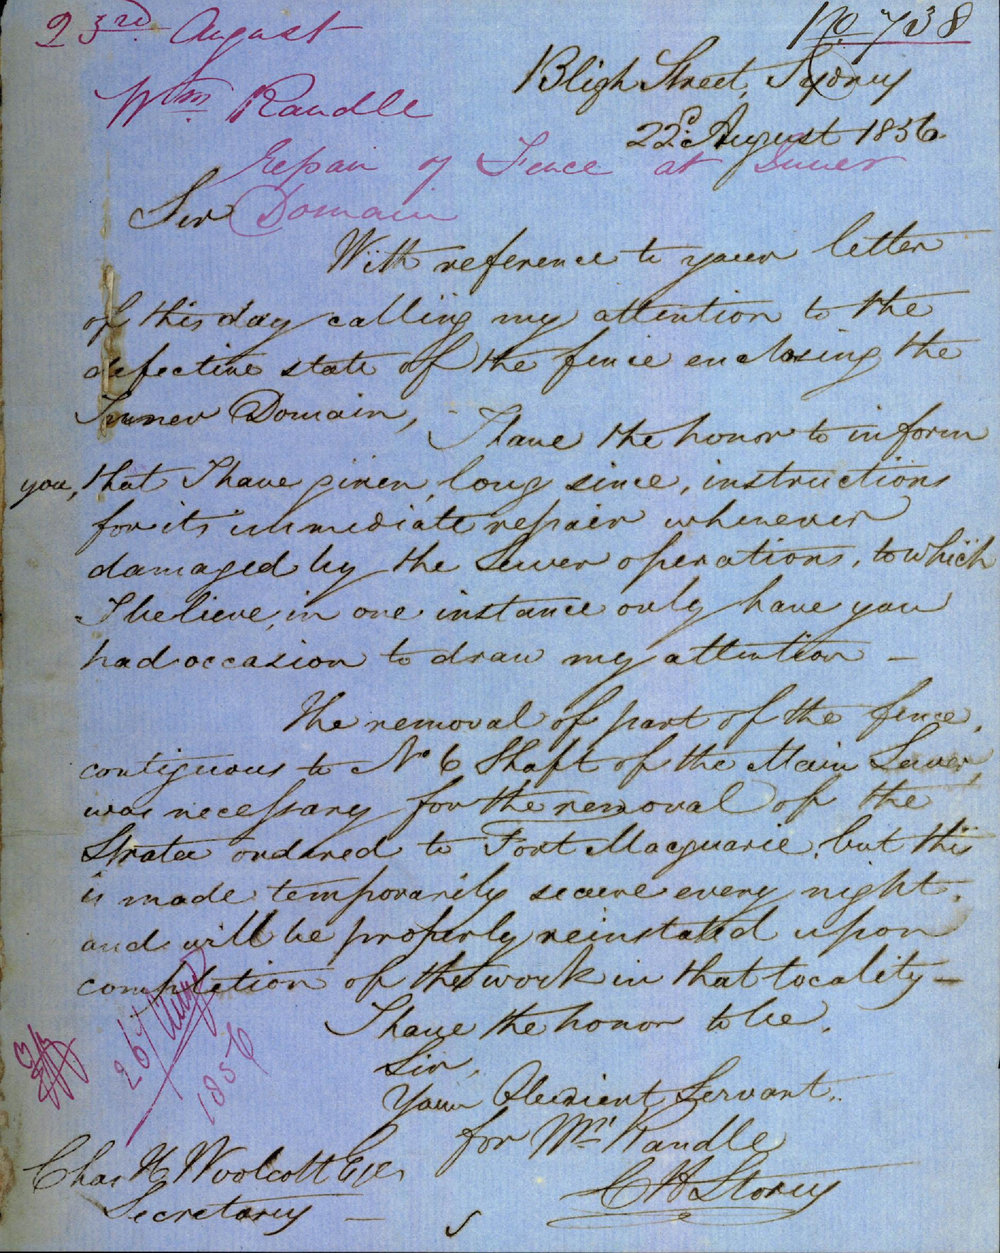 23rd August
No 738
Wm Randle
Bligh Street, Sydney
22d August 1856
Repair of Fence at Inner
Domain
Sir
With reference to your letter
of this day calling my attention to the
defective state of the fence enclosing the
Inner Domain, I have the honor to inform
you, that I have given, long since, instructions
for its immediate repair whenever
damaged by the Sewer operations, to which
I believe, in one instance only have you
had occasion to draw my attention –
The removal of part of the fence,
contiguous to No 6 Shaft of the Main Sewer,
was necessary for the removal of the
Strata ordered to Fort Macquarie, but this
is made temporarily secure every night,
and will be properly reinstated upon
completion of the work in that locality –
I have the honor to be,
Sir,
Your Obedient Servant.
for Wm Randle
C H Storey
Chas H Woolcott Esqr
Secretary –
26/ Augt
1856